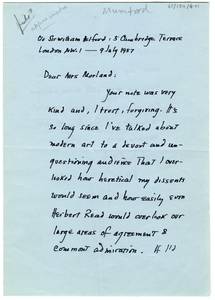 Mumford
c/o Sir William Holford : 5 Cambridge Terrace
London NW.1 — 9 July 1957
Dear Mrs Morland:
Your note was very
kind and, I trust, forgiving. It's
so long since I've talked about
modern art to a devout and un-
questioning audience that I over-
looked how heretical my dissents
would seem and how easily even
Herbert Read would overlook our
large areas of agreement &
common admiration. If I'd